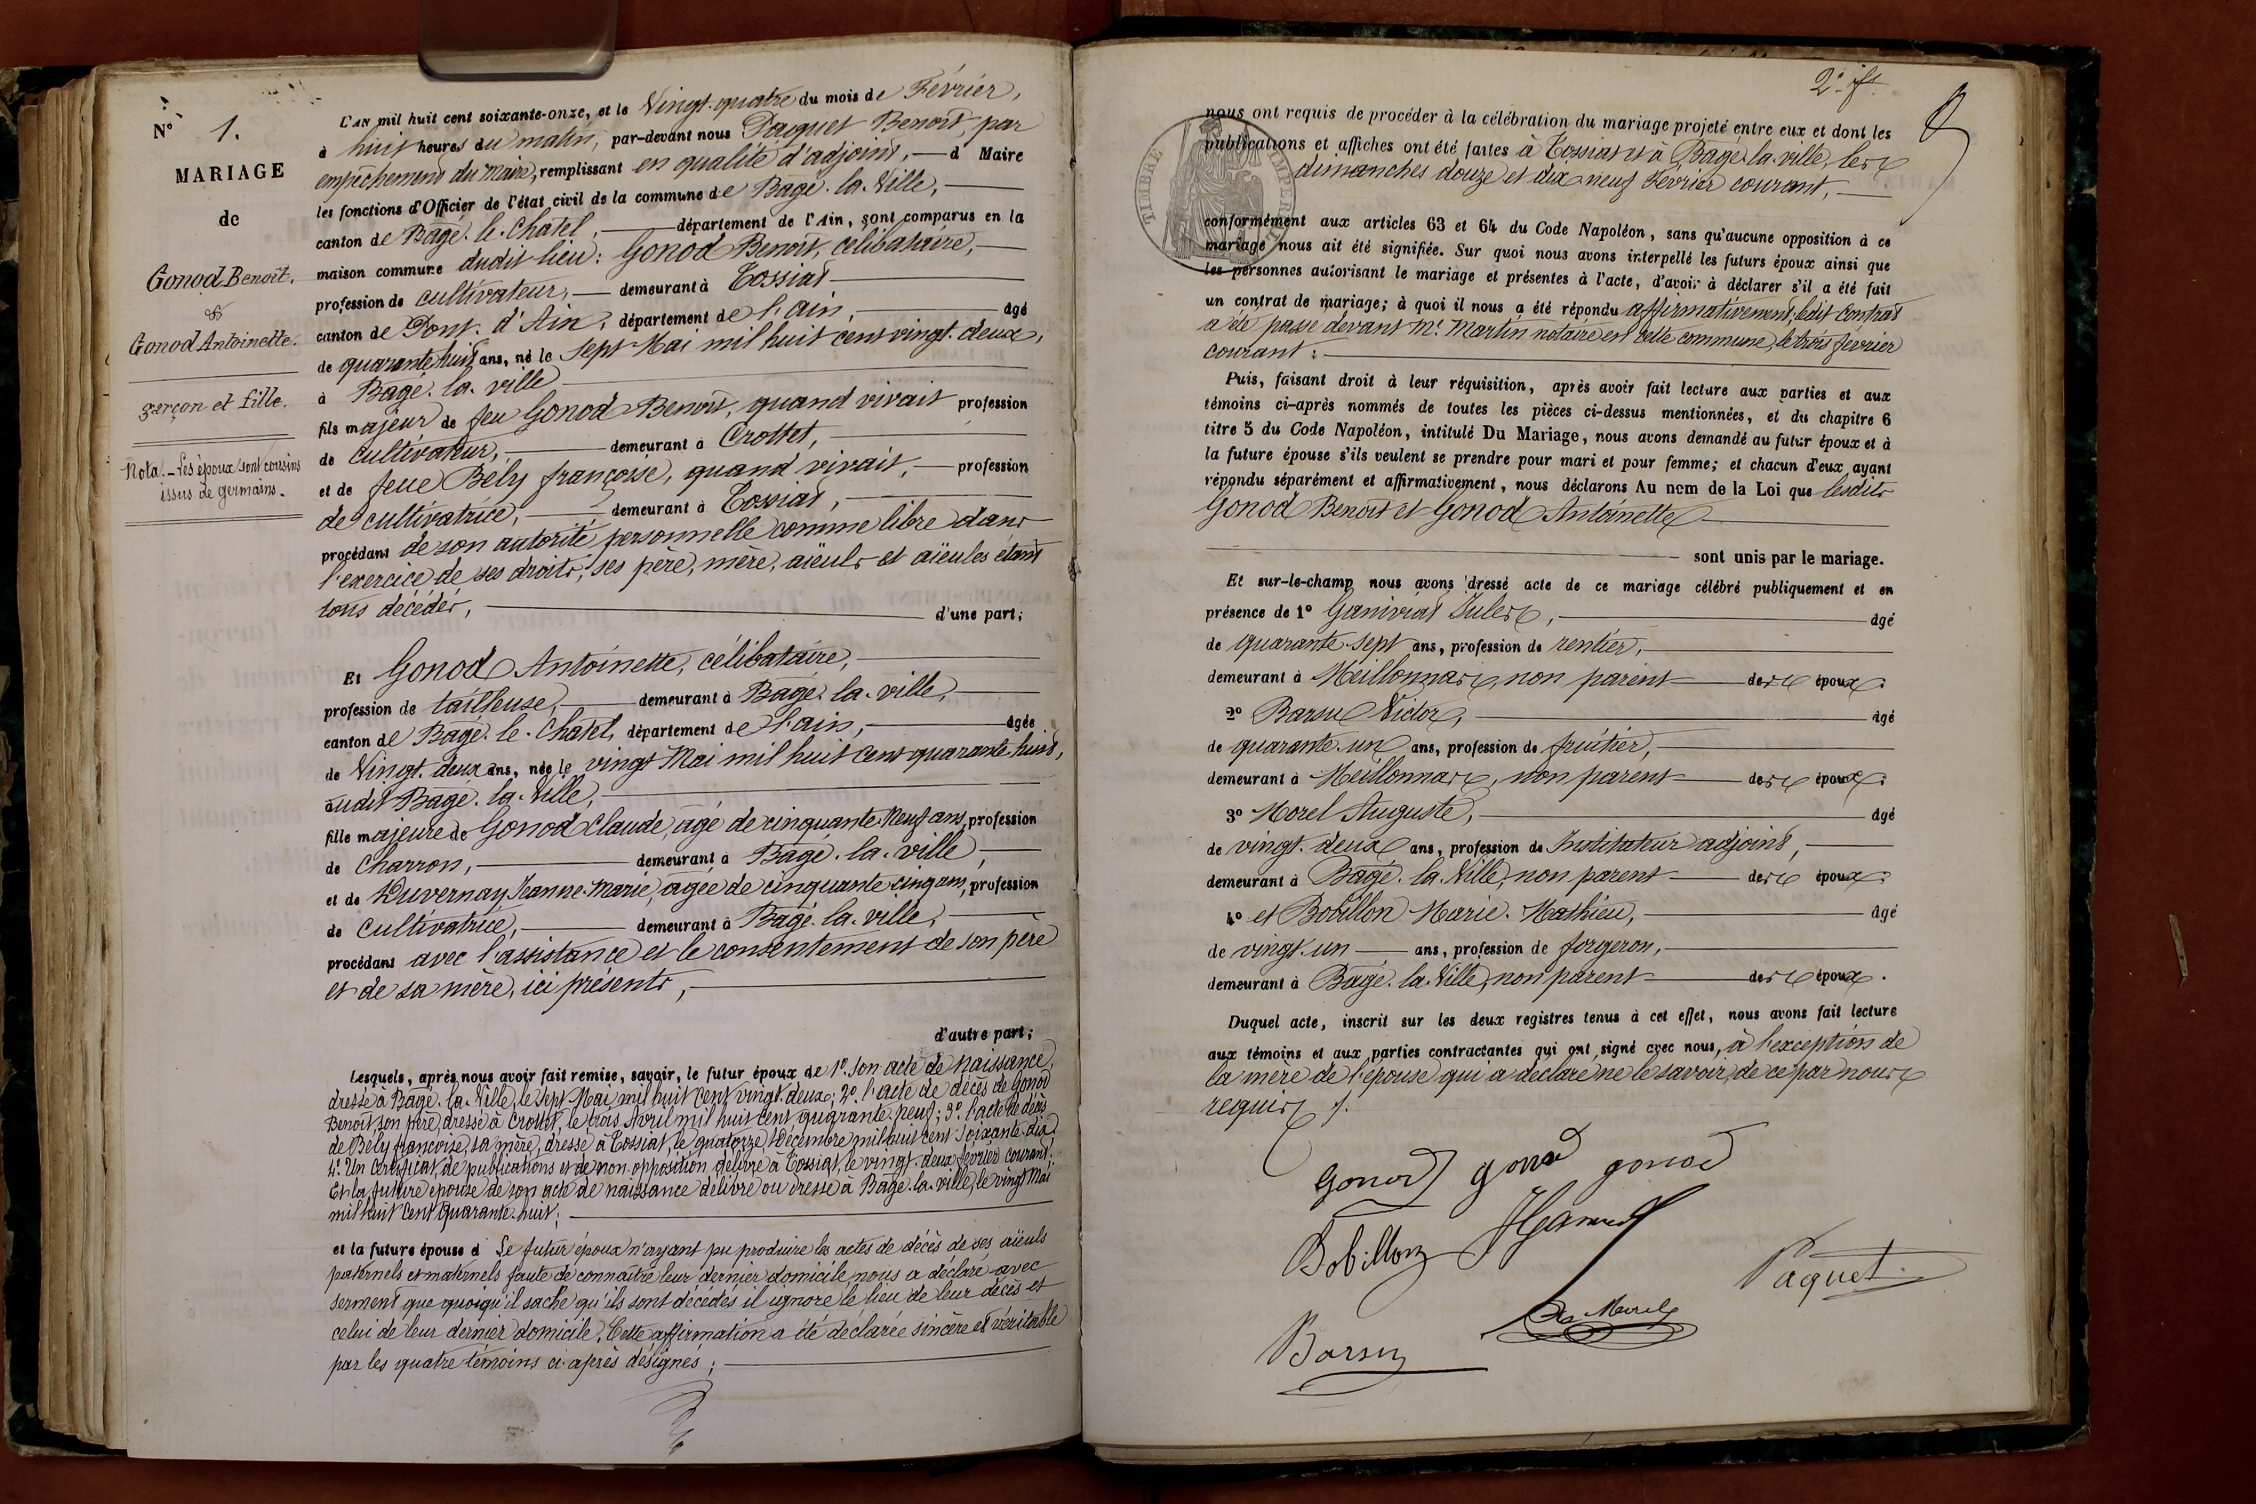 N° 1.
MARIAGE
de
Gonod Benoît.
&
Gonod Antoinette.
garçon et fille.
Nota. - Les époux sont cousins
issus de germains.
L'AN mil huit cent soixante-onze, et le Vingt-quatre du mois de Février,
à huit heures du matin, par-devant nous Paquet Benoît, par
empêchement du maire, remplissant en qualité d'adjoint, d Maire
les fonctions d'Officier de l'état civil de la commune de Bagé-la-Ville,
canton de Bagé-le-Châtel, département de l'Ain, sont comparus en la
maison commune dudit lieu: Gonod Benoît, célibataire,
profession de cultivateur, demeurant à Tossiat
canton de Pont-d'Ain, département de l'ain, âgé
de quarante huit ans, né le sept Mai mil huit cent vingt-deux,
à Bagé-la-ville
fils majeur de feu Gonod Benoît, quand vivait profession
de cultivateur, demeurant à Crottet,
et de feue Bély françoise, quand vivait, profession
de cultivatrice, demeurant à Tossiat,
procédant de son autorité personnelle comme libre dans
l'exercice de ses droits, ses père, mère, aïeuls et aïeules étant
tous décédés, d'une part;
Et Gonod Antoinette, célibataire,
profession de tailleuse, demeurant à Bagé-la-ville,
canton de Bagé-le-Châtel, département de l'ain, âgée
de Vingt-deux ans, née le vingt Mai mil huit cent quarante-huit,
audit Bagé-la-Ville,
fille majeure de Gonod Claude, âgé de cinquante-neuf ans, profession
de Charron, demeurant à Bagé-la-ville,
et de Duvernay Jeanne-Marie, âgée de cinquante-cinq ans, profession
de Cultivatrice, demeurant à Bagé-la-ville,
procédant avec l'assistance et le consentement de son père
et de sa mère, ici présents,
d'autre part;
Lesquels, après nous avoir fait remise, savoir, le futur époux de 1°. son acte de naissance,
dressé à Bagé-la-Ville, le sept Mai mil huit cent vingt-deux; 2°. l'acte de décès de Gonod
Benoît, son père, dressé à Crottet, le trois Avril mil huit cent quarante-neuf; 3°. l'acte de décès
de Bély françoise, sa mère, dressé à Tossiat, le quatorze Décembre mil huit cent soixante-dix;
4°. Un certificat de publications et de non opposition délivré à Tossiat, le vingt-deux février courant;
Et la future épouse de son acte de naissance délivré ou dressé à Bagé-la-ville, le vingt Mai
mil huit cent quarante-huit;
et la future épouse d Le futur époux n'ayant pu produire les actes de décès de ses aïeuls
paternels et maternels faute de connaître leur dernier domicile, nous a déclaré avec
serment que quoiqu'il sache qu'ils sont décédés il ignore le lieu de leur décès et
celui de leur dernier domicile. Cette affirmation a été déclarée sincère et véritable
par les quatre témoins ci-après désignés;
2e. ft.
TIMBRE IMPERIAL
nous ont requis de procéder à la célébration du mariage projeté entre eux et dont les
publications et affiches ont été faites à Tossiat et à Bagé-la-ville, les
dimanches douze et dix-neuf Février courant,
conformément aux articles 63 et 64 du Code Napoléon, sans qu'aucune opposition à ce
mariage nous ait été signifiée. Sur quoi nous avons interpellé les futurs époux ainsi que
les personnes autorisant le mariage et présentes à l'acte, d'avoir à déclarer s'il a été fait
un contrat de mariage; à quoi il nous a été répondu affirmativement, ledit contrat
a été passé devant Me. Martin notaire en cette commune, le trois février
courant;
Puis, faisant droit à leur réquisition, après avoir fait lecture aux parties et aux
témoins ci-après nommés de toutes les pièces ci-dessus mentionnées, et du chapitre 6
titre 5 du Code Napoléon, intitulé Du Mariage, nous avons demandé au futur époux et à
la future épouse s'ils veulent se prendre pour mari et pour femme; et chacun d'eux ayant
répondu séparément et affirmativement, nous déclarons Au nom de la Loi que lesdits
Gonod Benoît et Gonod Antoinette
sont unis par le mariage.
Et sur-le-champ nous avons dressé acte de ce mariage célébré publiquement et en
présence de 1° Ganivial Jules, âgé
de quarante-sept ans, profession de rentier,
demeurant à Meillonnas, non parent des époux.
2° Barsu Victor, âgé
de quarante-un ans, profession de fruitier,
demeurant à Meillonnas, non parent des époux.
3° Morel Auguste, âgé
de vingt-deux ans, profession de Instituteur adjoint,
demeurant à Bagé-la-Ville, non parent des époux.
4° et Bobillon Marie-Mathieu, âgé
de vingt-un ans, profession de forgeron,
demeurant à Bagé-la-Ville, non parent des époux.
Duquel acte, inscrit sur les deux registres tenus à cet effet, nous avons fait lecture
aux témoins et aux parties contractantes qui ont signé avec nous, à l'exception de
la mère de l'épouse qui a déclaré ne le savoir, de ce par nous
requis /.
Gonod gonod gonod
Bobillon
Paquet
Morel
Barsu